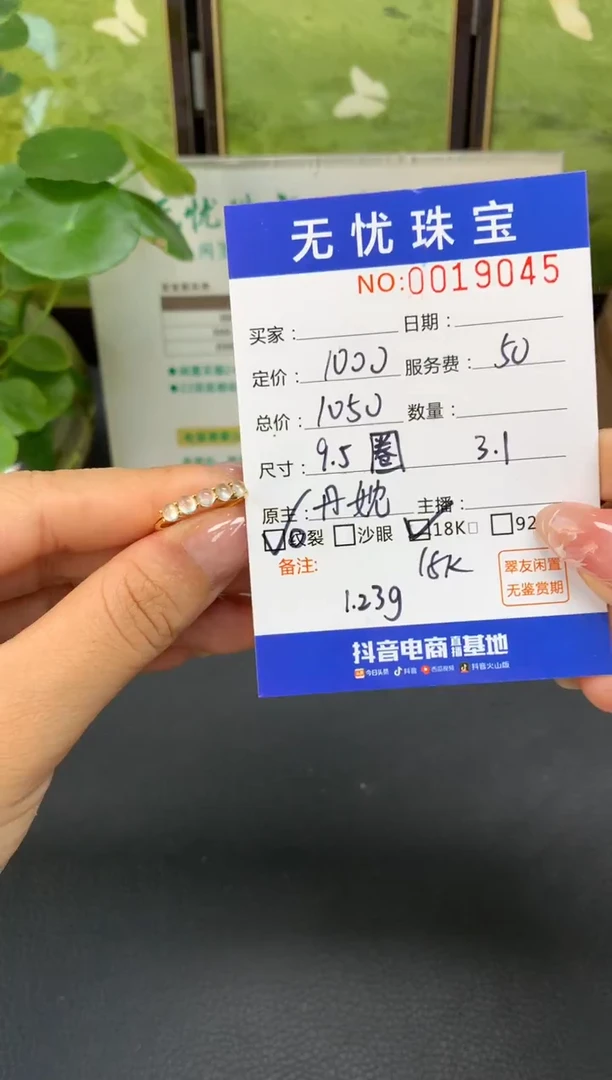 无忧珠宝
NO:0019045
买家： 日期：
定价：1000 服务费：50
总价：1050 数量：
尺寸：9.5 圈 3.1
原主：丹婉 主播：
纹裂 沙眼 18K 92
备注: 18K
翠友闲置
无鉴赏期
1.23g
抖音电商直播基地
今日头条 抖音 西瓜视频 抖音火山版